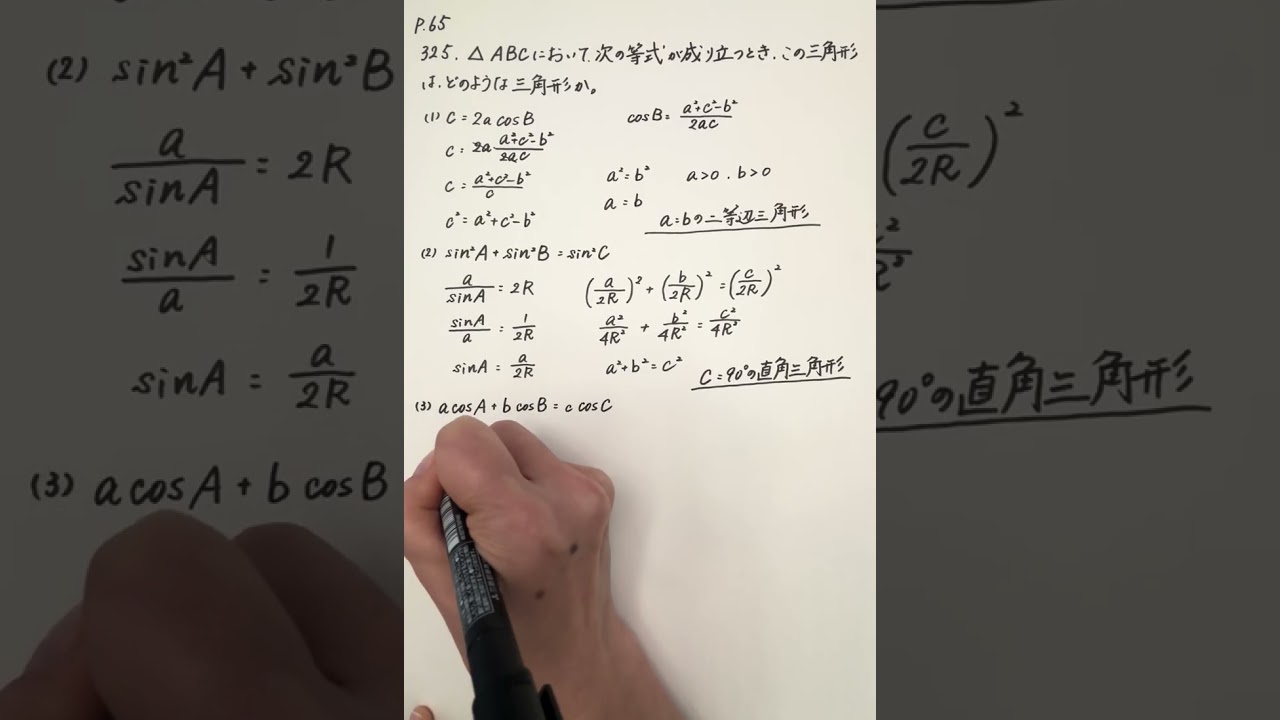 P.65
325. △ABCにおいて、次の等式が成り立つとき、この三角形
は、どのような三角形か。
(1) C = 2a cosB
cosB = \frac{a²+c²-b²}{2ac}
C = 2a \frac{a²+c²-b²}{2ac}
C = \frac{a²+c²-b²}{c}
c² = a²+c²-b²
a² = b² a>0 . b>0
a = b
a=bの二等辺三角形
(2) sin²A + sin²B = sin²C
\frac{a}{sinA} = 2R
\frac{sinA}{a} = \frac{1}{2R}
sinA = \frac{a}{2R}
(\frac{a}{2R})² + (\frac{b}{2R})² = (\frac{c}{2R})²
\frac{a²}{4R²} + \frac{b²}{4R²} = \frac{c²}{4R²}
a²+b² = c²
C=90°の直角三角形
(3) a cosA + b cosB = c cosC